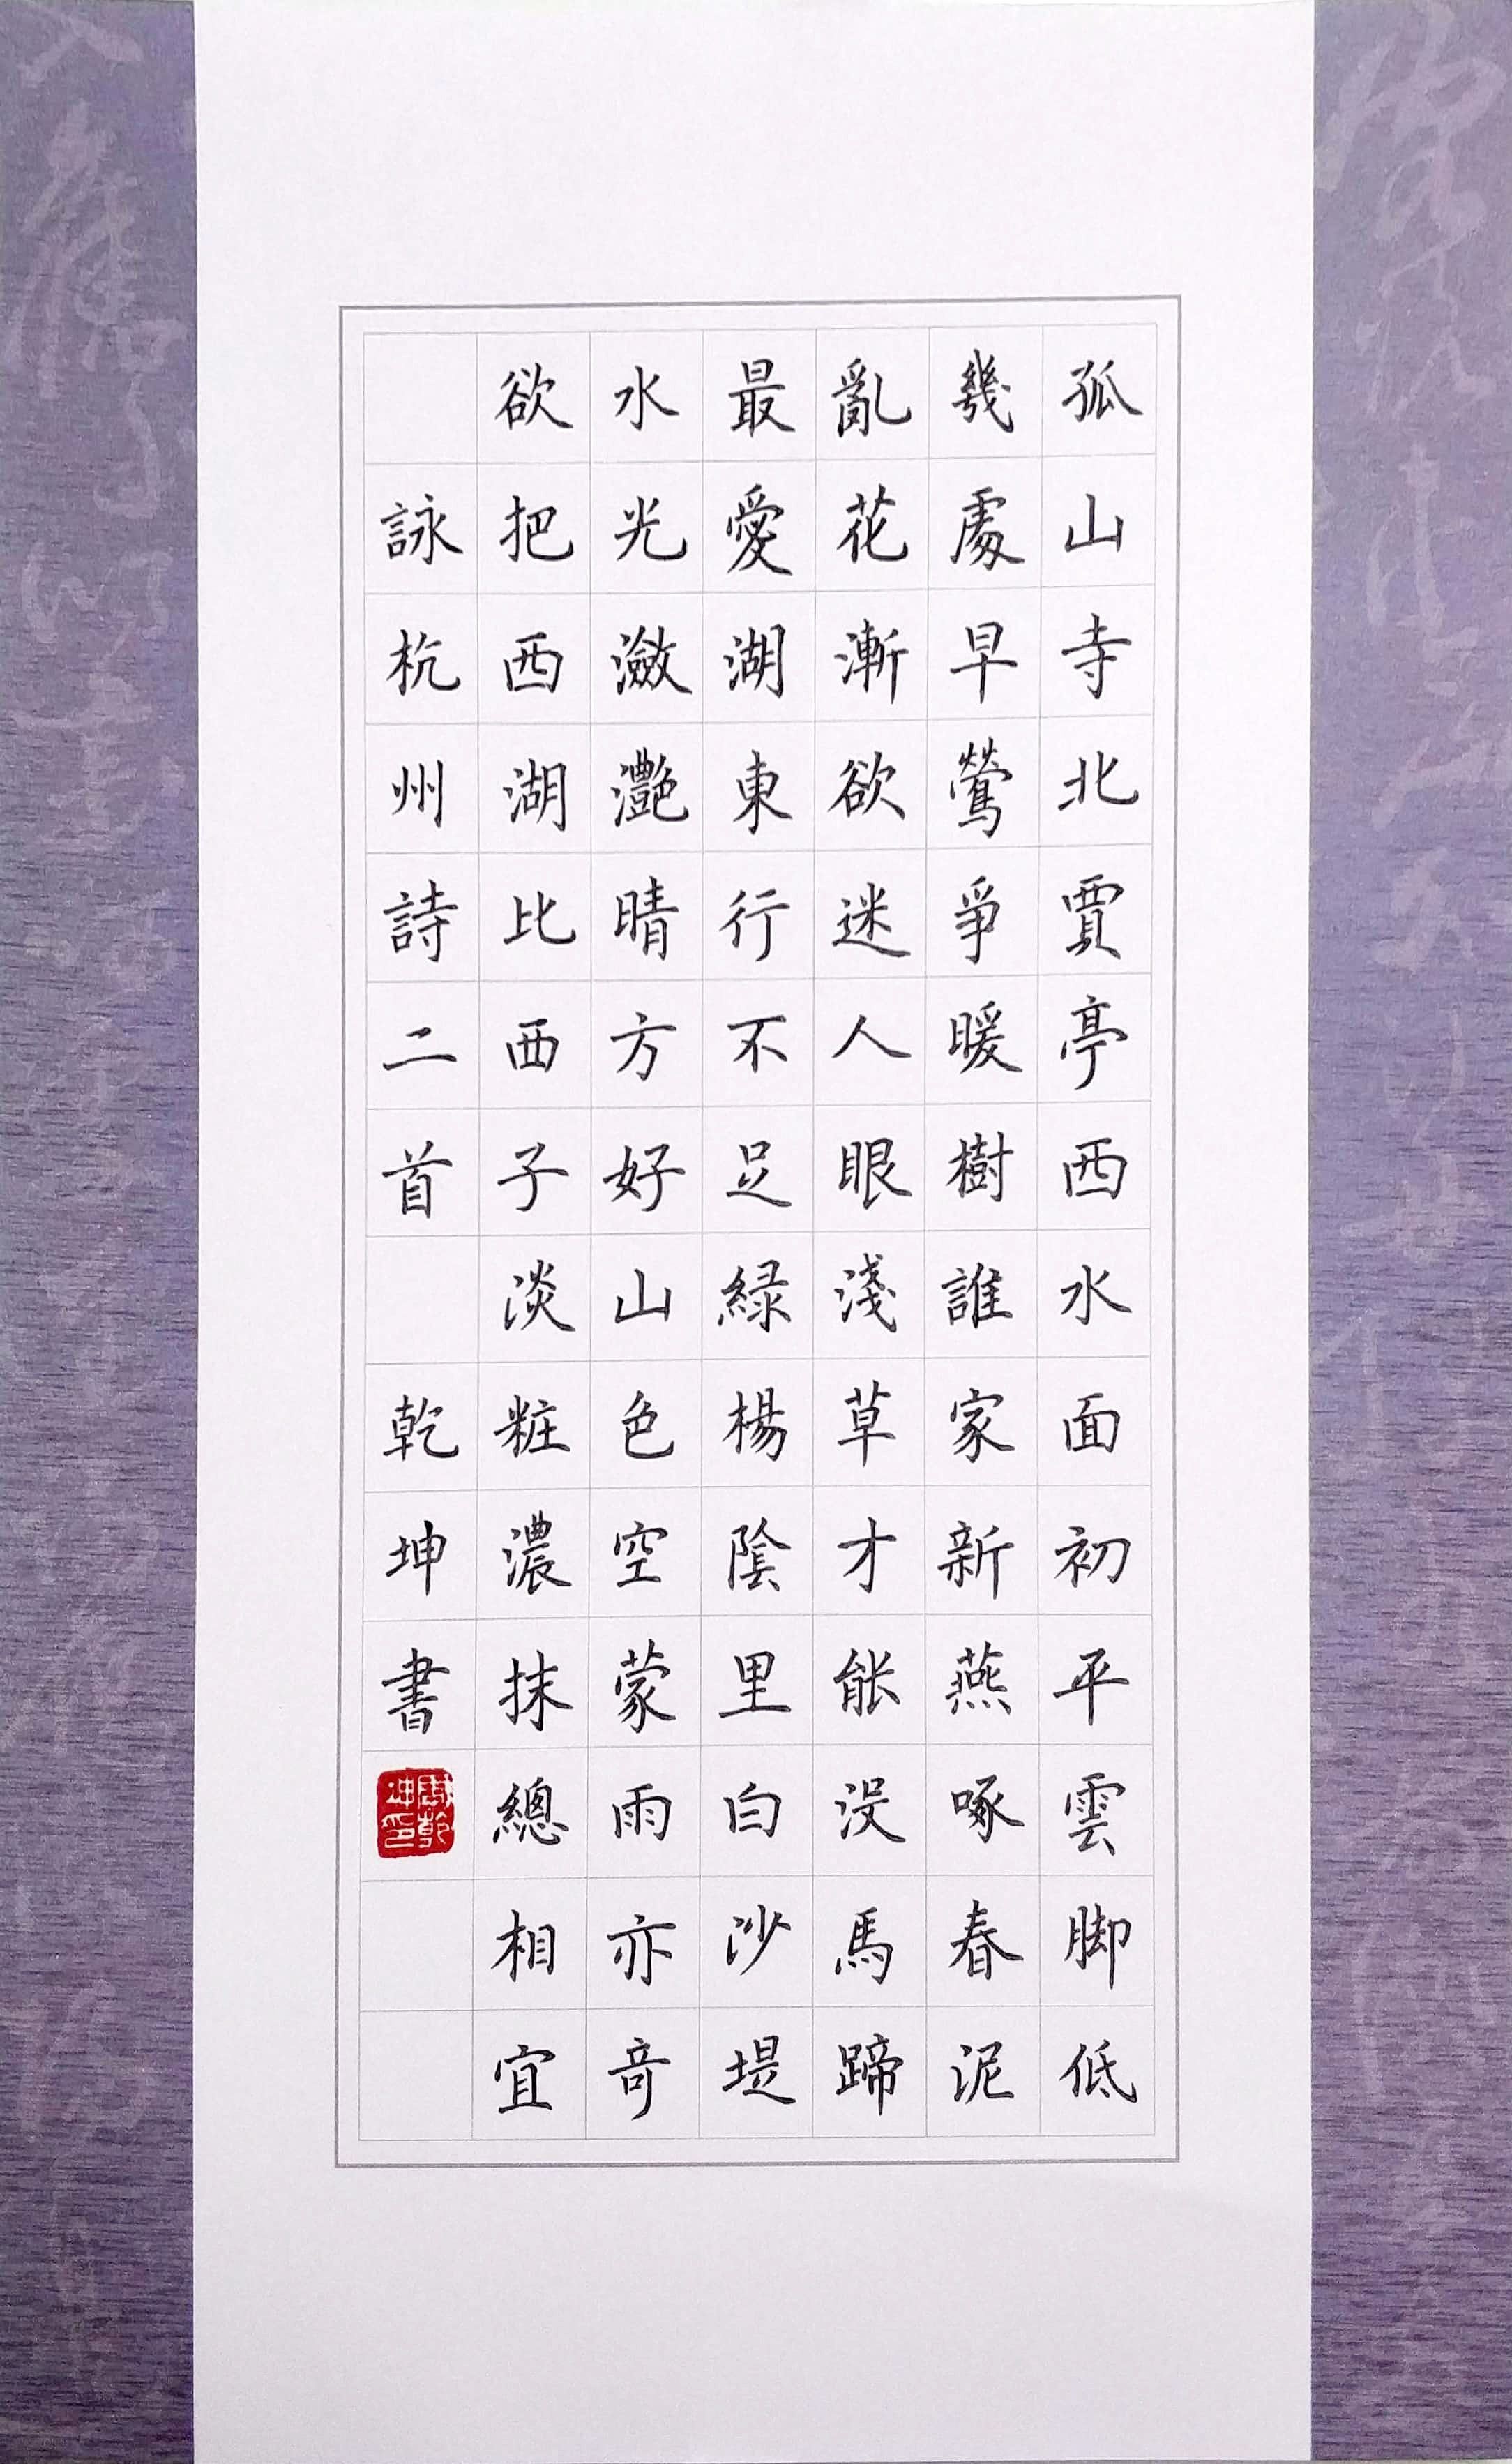 孤山寺北賈亭西水面初平雲脚低
幾處早鶯爭暖樹誰家新燕啄春泥
亂花漸欲迷人眼淺草才能没馬蹄
最愛湖東行不足緑楊陰里白沙堤
水光瀲灩晴方好山色空蒙雨亦奇
欲把西湖比西子淡粧濃抹總相宜
詠杭州詩二首 乾坤書